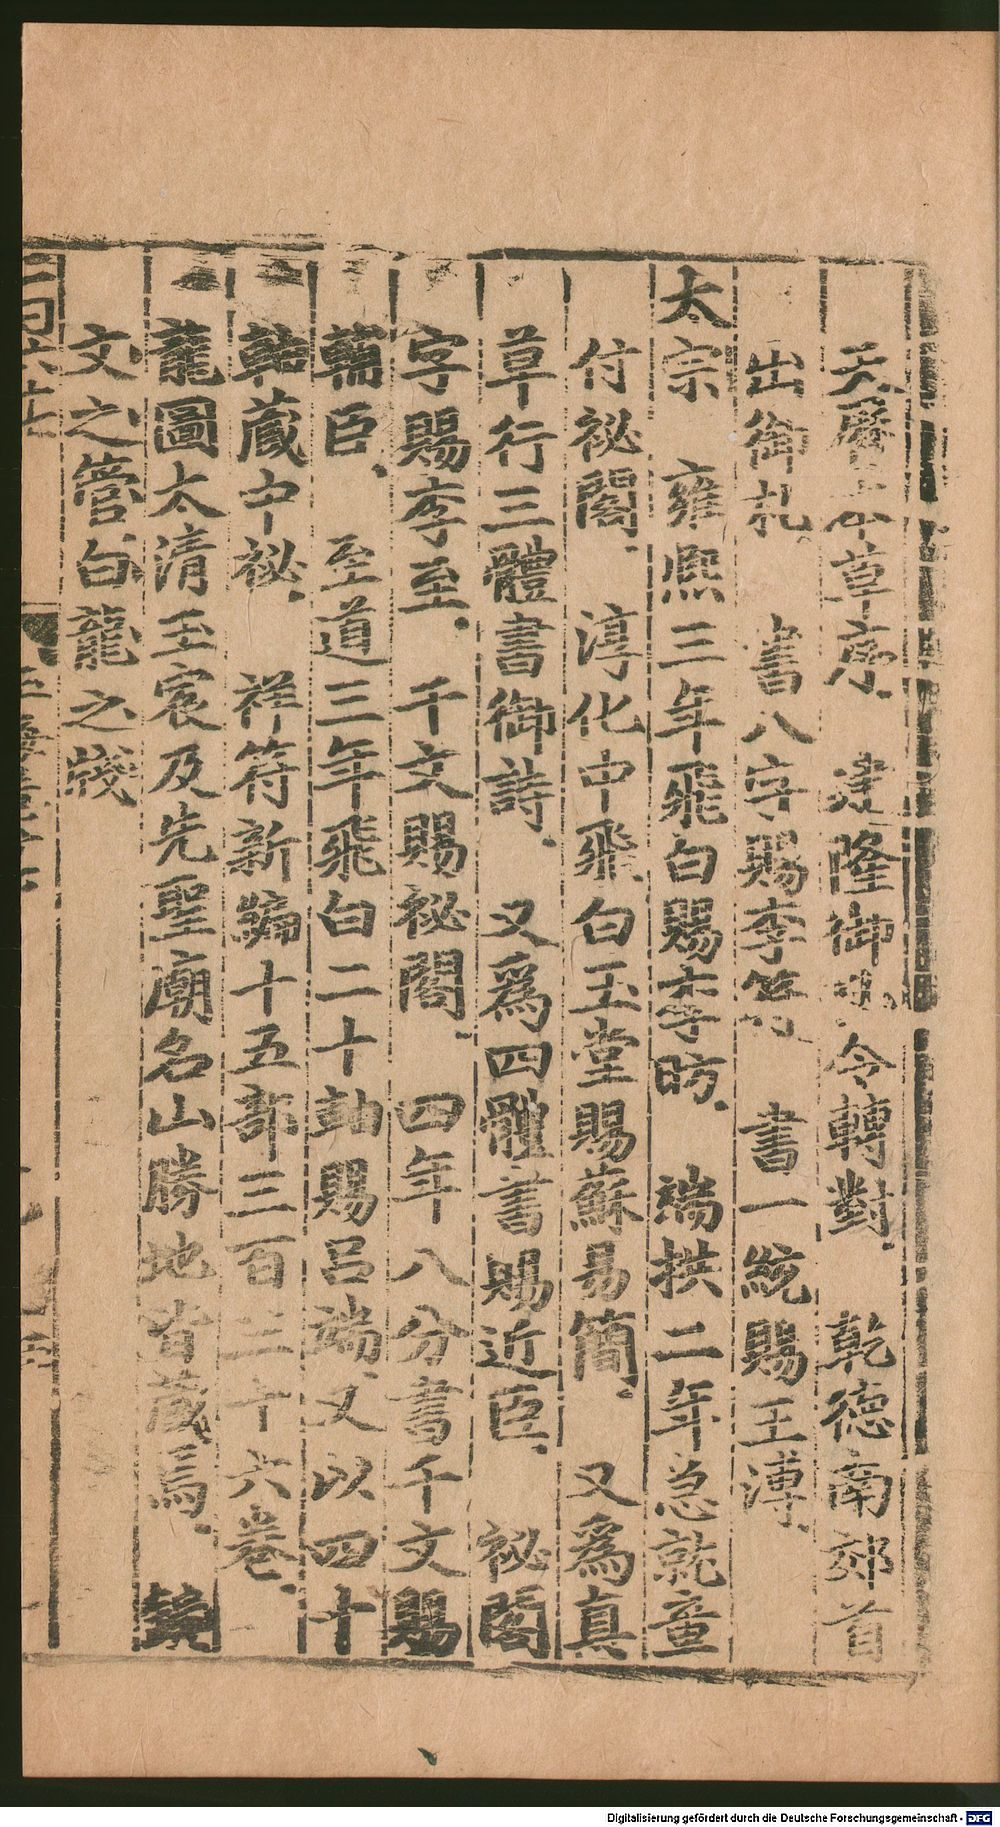 天曆本草序 建隆御札令轉對、乾德南郊首
出御札、書八字賜李符 書一統賜王溥、
太宗 雍熙三年飛白賜李昉、端拱二年急就章
付祕閣、淳化中飛白玉堂賜蘇易簡、又爲真
草行三體書御詩、又爲四體書賜近臣、祕閣
字賜李至、千文賜祕閣、四年八分書千文賜
輔臣、至道三年飛白二十軸賜呂端、又以四十
軸藏中祕、祥符新編十五部三百三十六卷、
龍圖太清玉宸及先聖廟名山勝地皆藏焉、
文之管白龍之牋
Digitalisierung gefördert durch die Deutsche Forschungsgemeinschaft - DFG